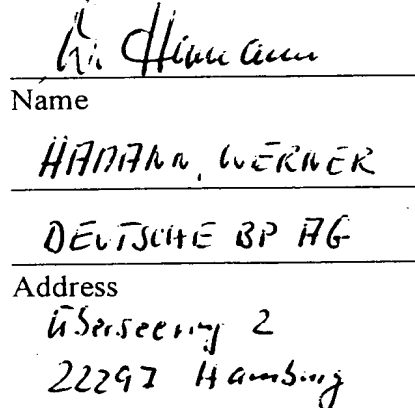 Name
HAMANN, WERNER
DEUTSCHE BP AG
Address
Überseering 2
22297 Hamburg